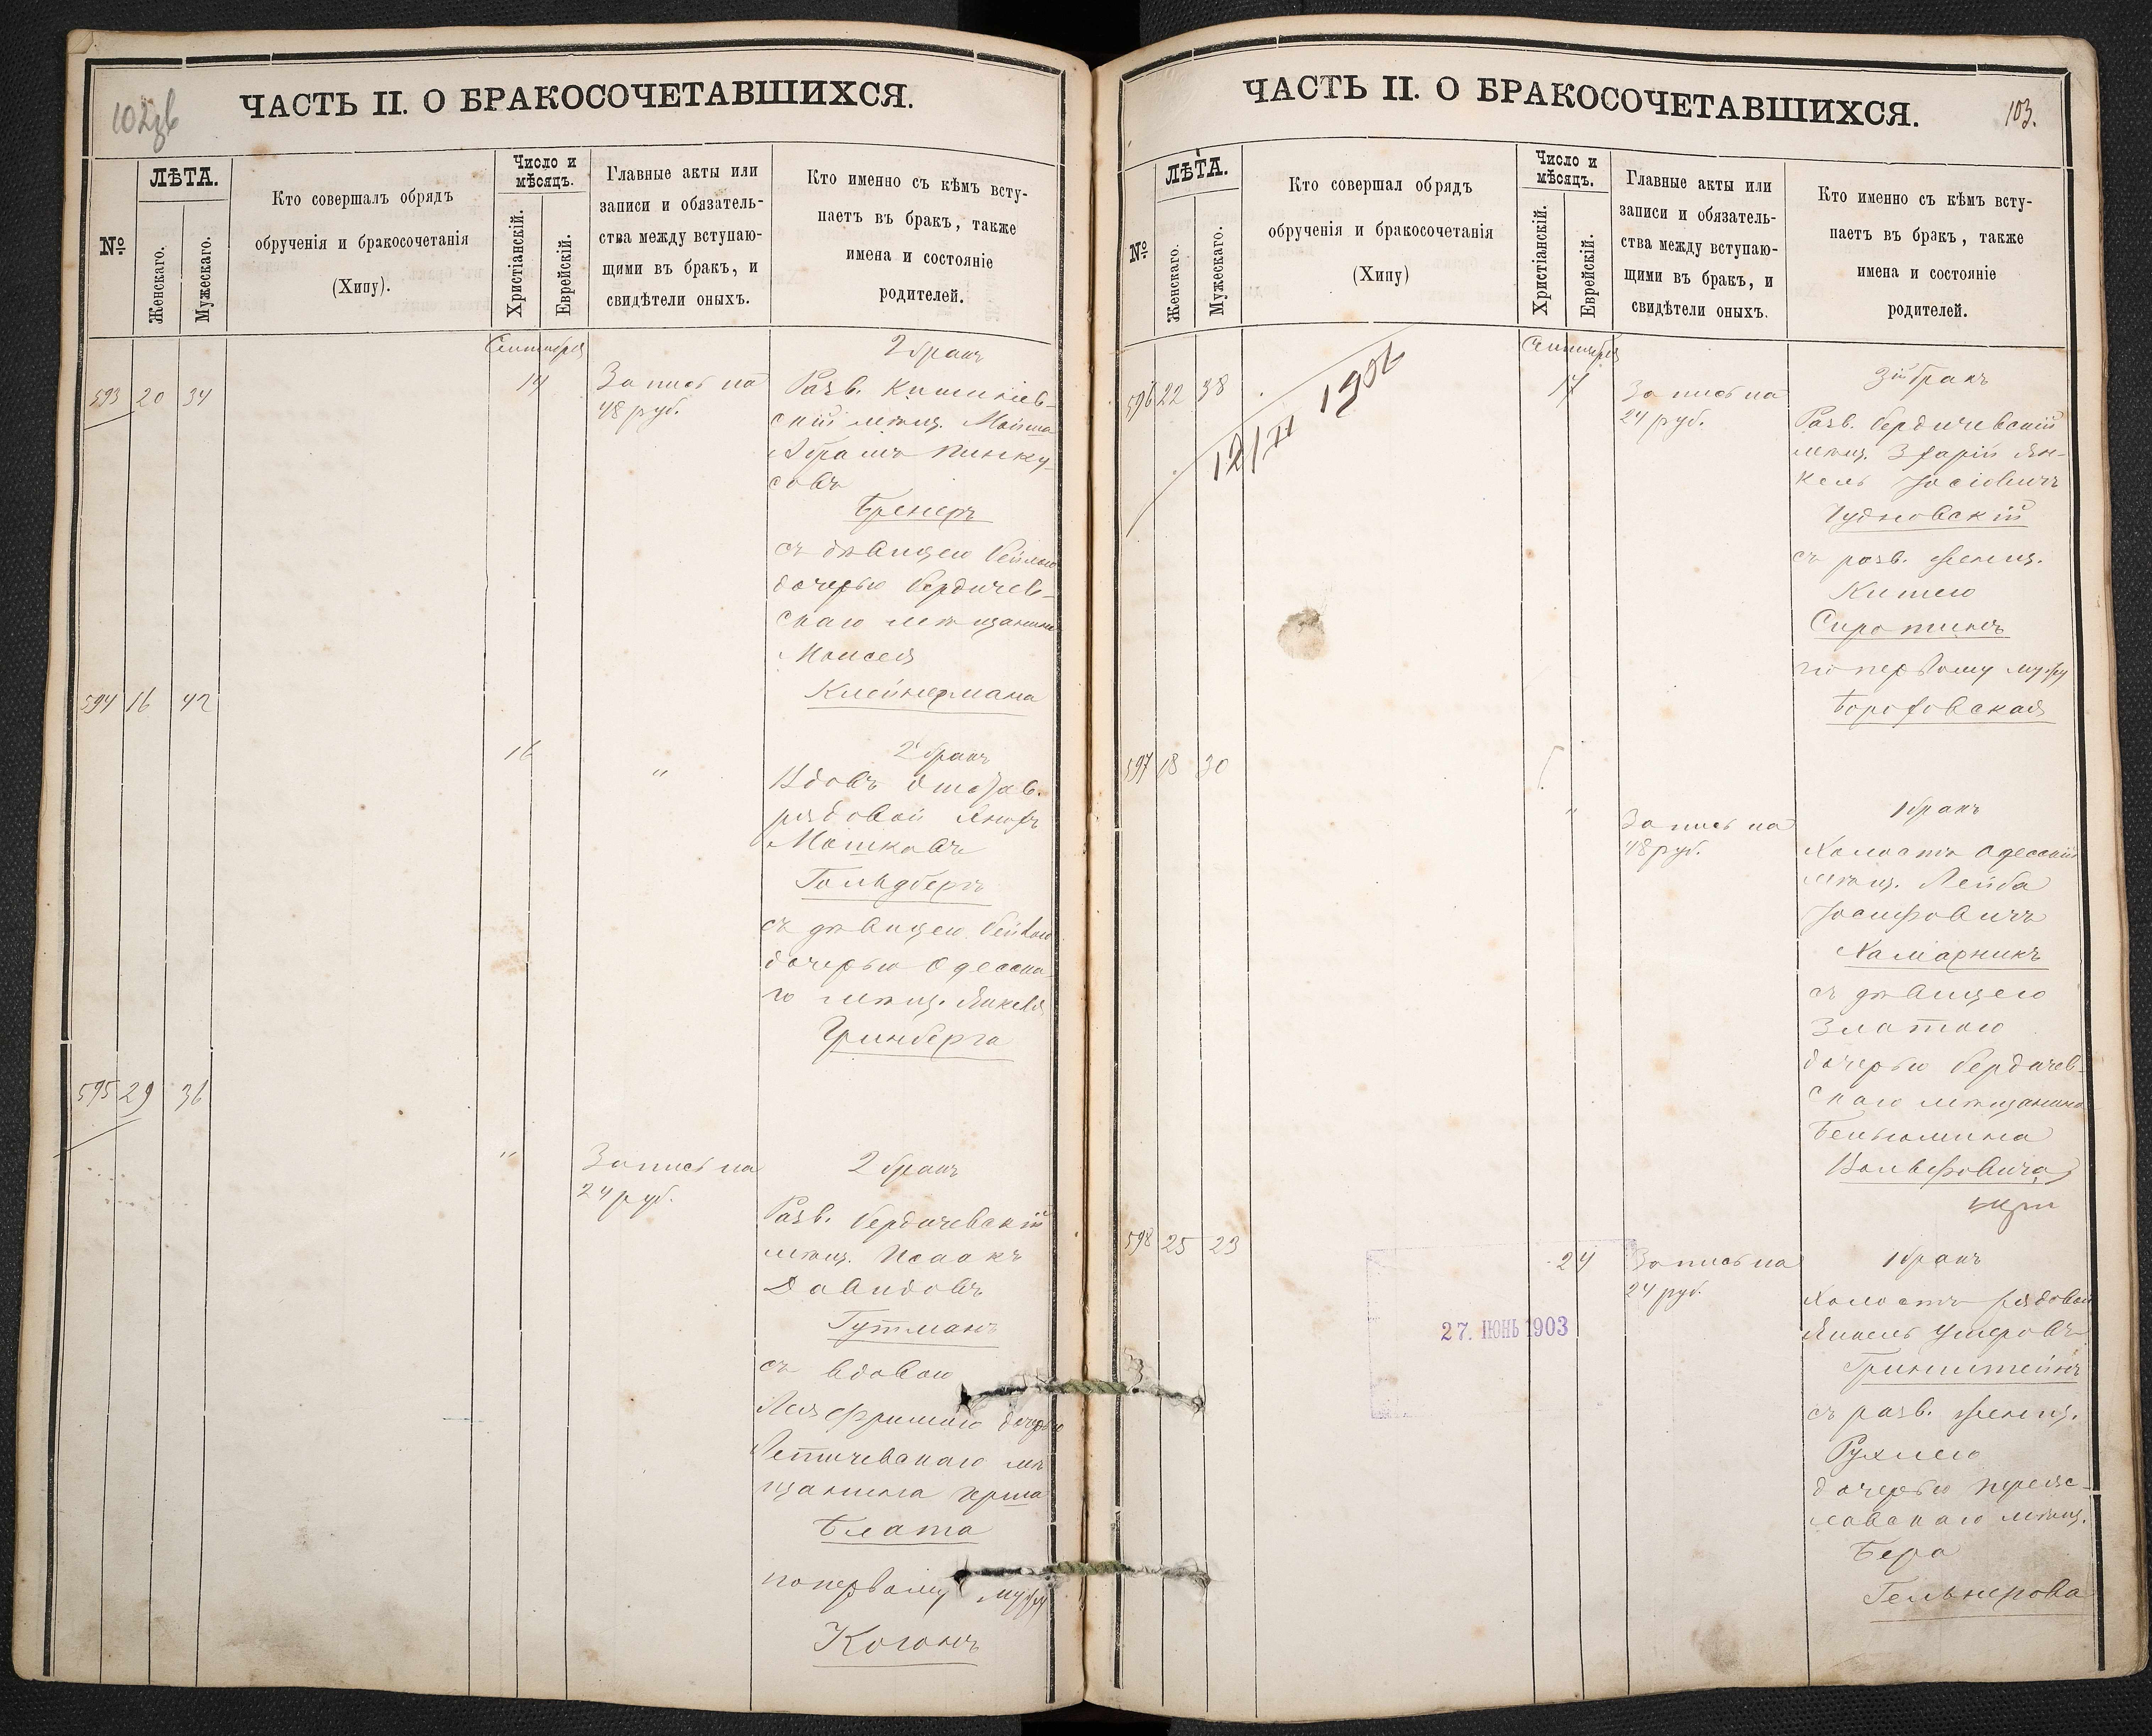 102 об
ЧАСТЬ II. О БРАКОСОЧЕТАВШИХСЯ.
№
ЛѢТА.
Женскаго.
Мужескаго.
Кто совершалъ обрядъ
обрученія и бракосочетанія
(Хипу).
Число и
мѣсяцъ.
Христіанскій.
Еврейскій.
Главные акты или
записи и обязатель-
ства между вступаю-
щими въ бракъ, и
свидѣтели оныхъ.
Кто именно съ кѣмъ всту-
паетъ въ бракъ, также
имена и состояніе
родителей.
Сентября
593 20 34
14
Запись на
48 руб.
2 бракъ
Разв. Кишинев-
скій мѣщ. Мойша
Абрамъ Пинку-
совъ
Бренеръ
съ дѣвицею Бейлою
дочерью Бердичев-
скаго мѣщанина
Моисея
Клейнермана
594 16 42
16
"
2 бракъ
Вдовъ отстав.
рядовой
Мошковъ
Гольдбергъ
съ дѣвицею
дочерью Одесска-
го мѣщ. Янкеля
Гринберга
595 29 36
"
Запись на
24 руб.
2 бракъ
Разв. Бердичевскій
мѣщ. Исаакъ
Давидовъ
Гутманъ
съ вдовою
Лея Фримою дочерью
Летичевскаго мѣ
щанина Герша
Блата
по первому мужу
Коганъ
ЧАСТЬ II. О БРАКОСОЧЕТАВШИХСЯ.
103.
№
ЛѢТА.
Женскаго.
Мужескаго.
Кто совершал обрядъ
обрученія и бракосочетанія
(Хипу)
Число и
мѣсяцъ.
Христіанскій.
Еврейскій.
Главные акты или
записи и обязатель-
ства между вступаю-
щими въ бракъ, и
свидѣтели оныхъ.
Кто именно съ кѣмъ всту-
паетъ въ бракъ, также
имена и состояніе
родителей.
Сентября
596 22 38
12/II 1902
17
Запись на
24 руб.
3й бракъ
Разв. Бердичевскій
мѣщ. Ян-
кель Іосіовичъ
Чудновскій
съ разв. женщ.
Китею
Сиротинъ
по первому мужу
Бороховская
597 18 30
"
Запись на
48 руб.
1 бракъ
Холостъ Одесскій
мѣщ. Лейба
Іосифовичъ
Хамарникъ
съ дѣвицею
Златою
дочерью Бердичев-
скаго мѣщанина
Беньюмина
Вольфовича
598 25 23
24
Запись на
24 руб.
27. ІЮНЬ 1903
1 бракъ
Холостъ рядовой
Янкель Ушеровъ
Гринштейнъ
съ разв. женщ.
Рухлею
дочерью Переяс-
лавскаго мѣщ.
Бера
Гельнерова